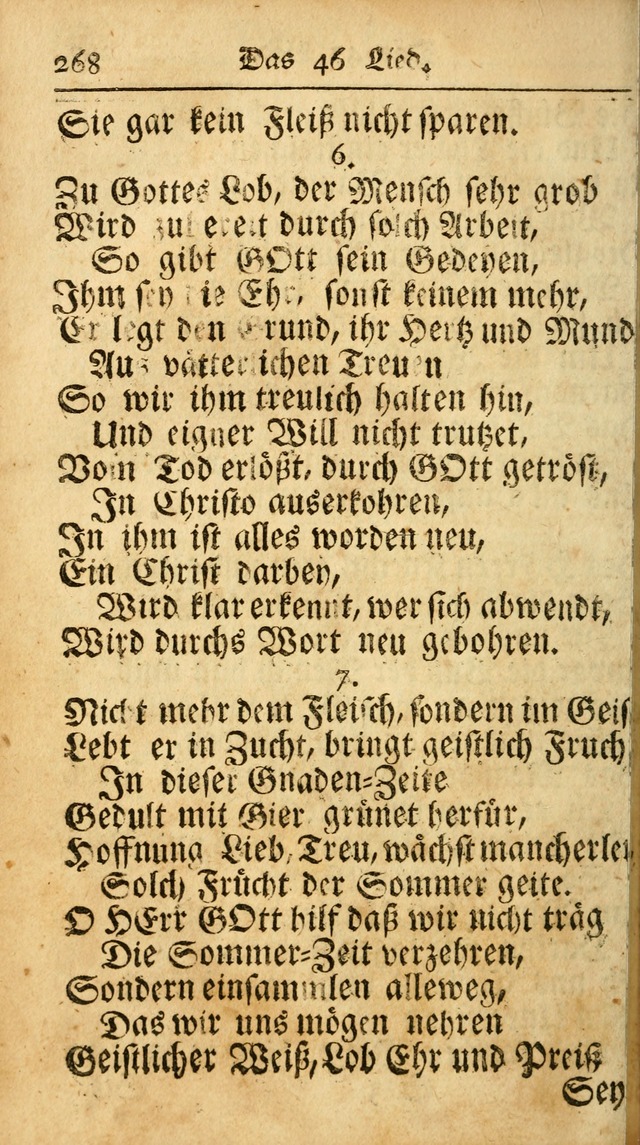 268 Das 46 Lied.
Sie gar kein Fleiß nicht sparen.
6.
Zu Gottes Lob, der Mensch sehr grob
Wird durch solch Arbeit,
So gibt GOtt sein Gedeyen,
Ihm sey die Ehr, sonst keinem mehr,
Er legt den Grund, ihr Hertz und Mund
Aus vätterlichen Treuen
So wir ihm treulich halten hin,
Und eigner Will nicht trutzet,
Vom Tod erlößt, durch GOtt getröst,
In Christo auserkohren,
In ihm ist alles worden neu,
Ein Christ darbey,
Wird klar erkennt, wer sich abwendt,
Wird durchs Wort neu gebohren.
7.
Nicht mehr dem Fleisch, sondern im Geis
Lebt er in Zucht, bringt geistlich Fruch
In dieser Gnaden-Zeite
Gedult mit Gier grünet herfür,
Hoffnung Lieb, Treu, wächst mancherley
Solch Frücht der Sommer geite.
O HErr GOtt hilf daß wir nicht träg
Die Sommer-Zeit verzehren,
Sondern einsammlen alleweg,
Das wir uns mögen nehren
Geistlicher Weiß, Lob Ehr und Preiß
Sey